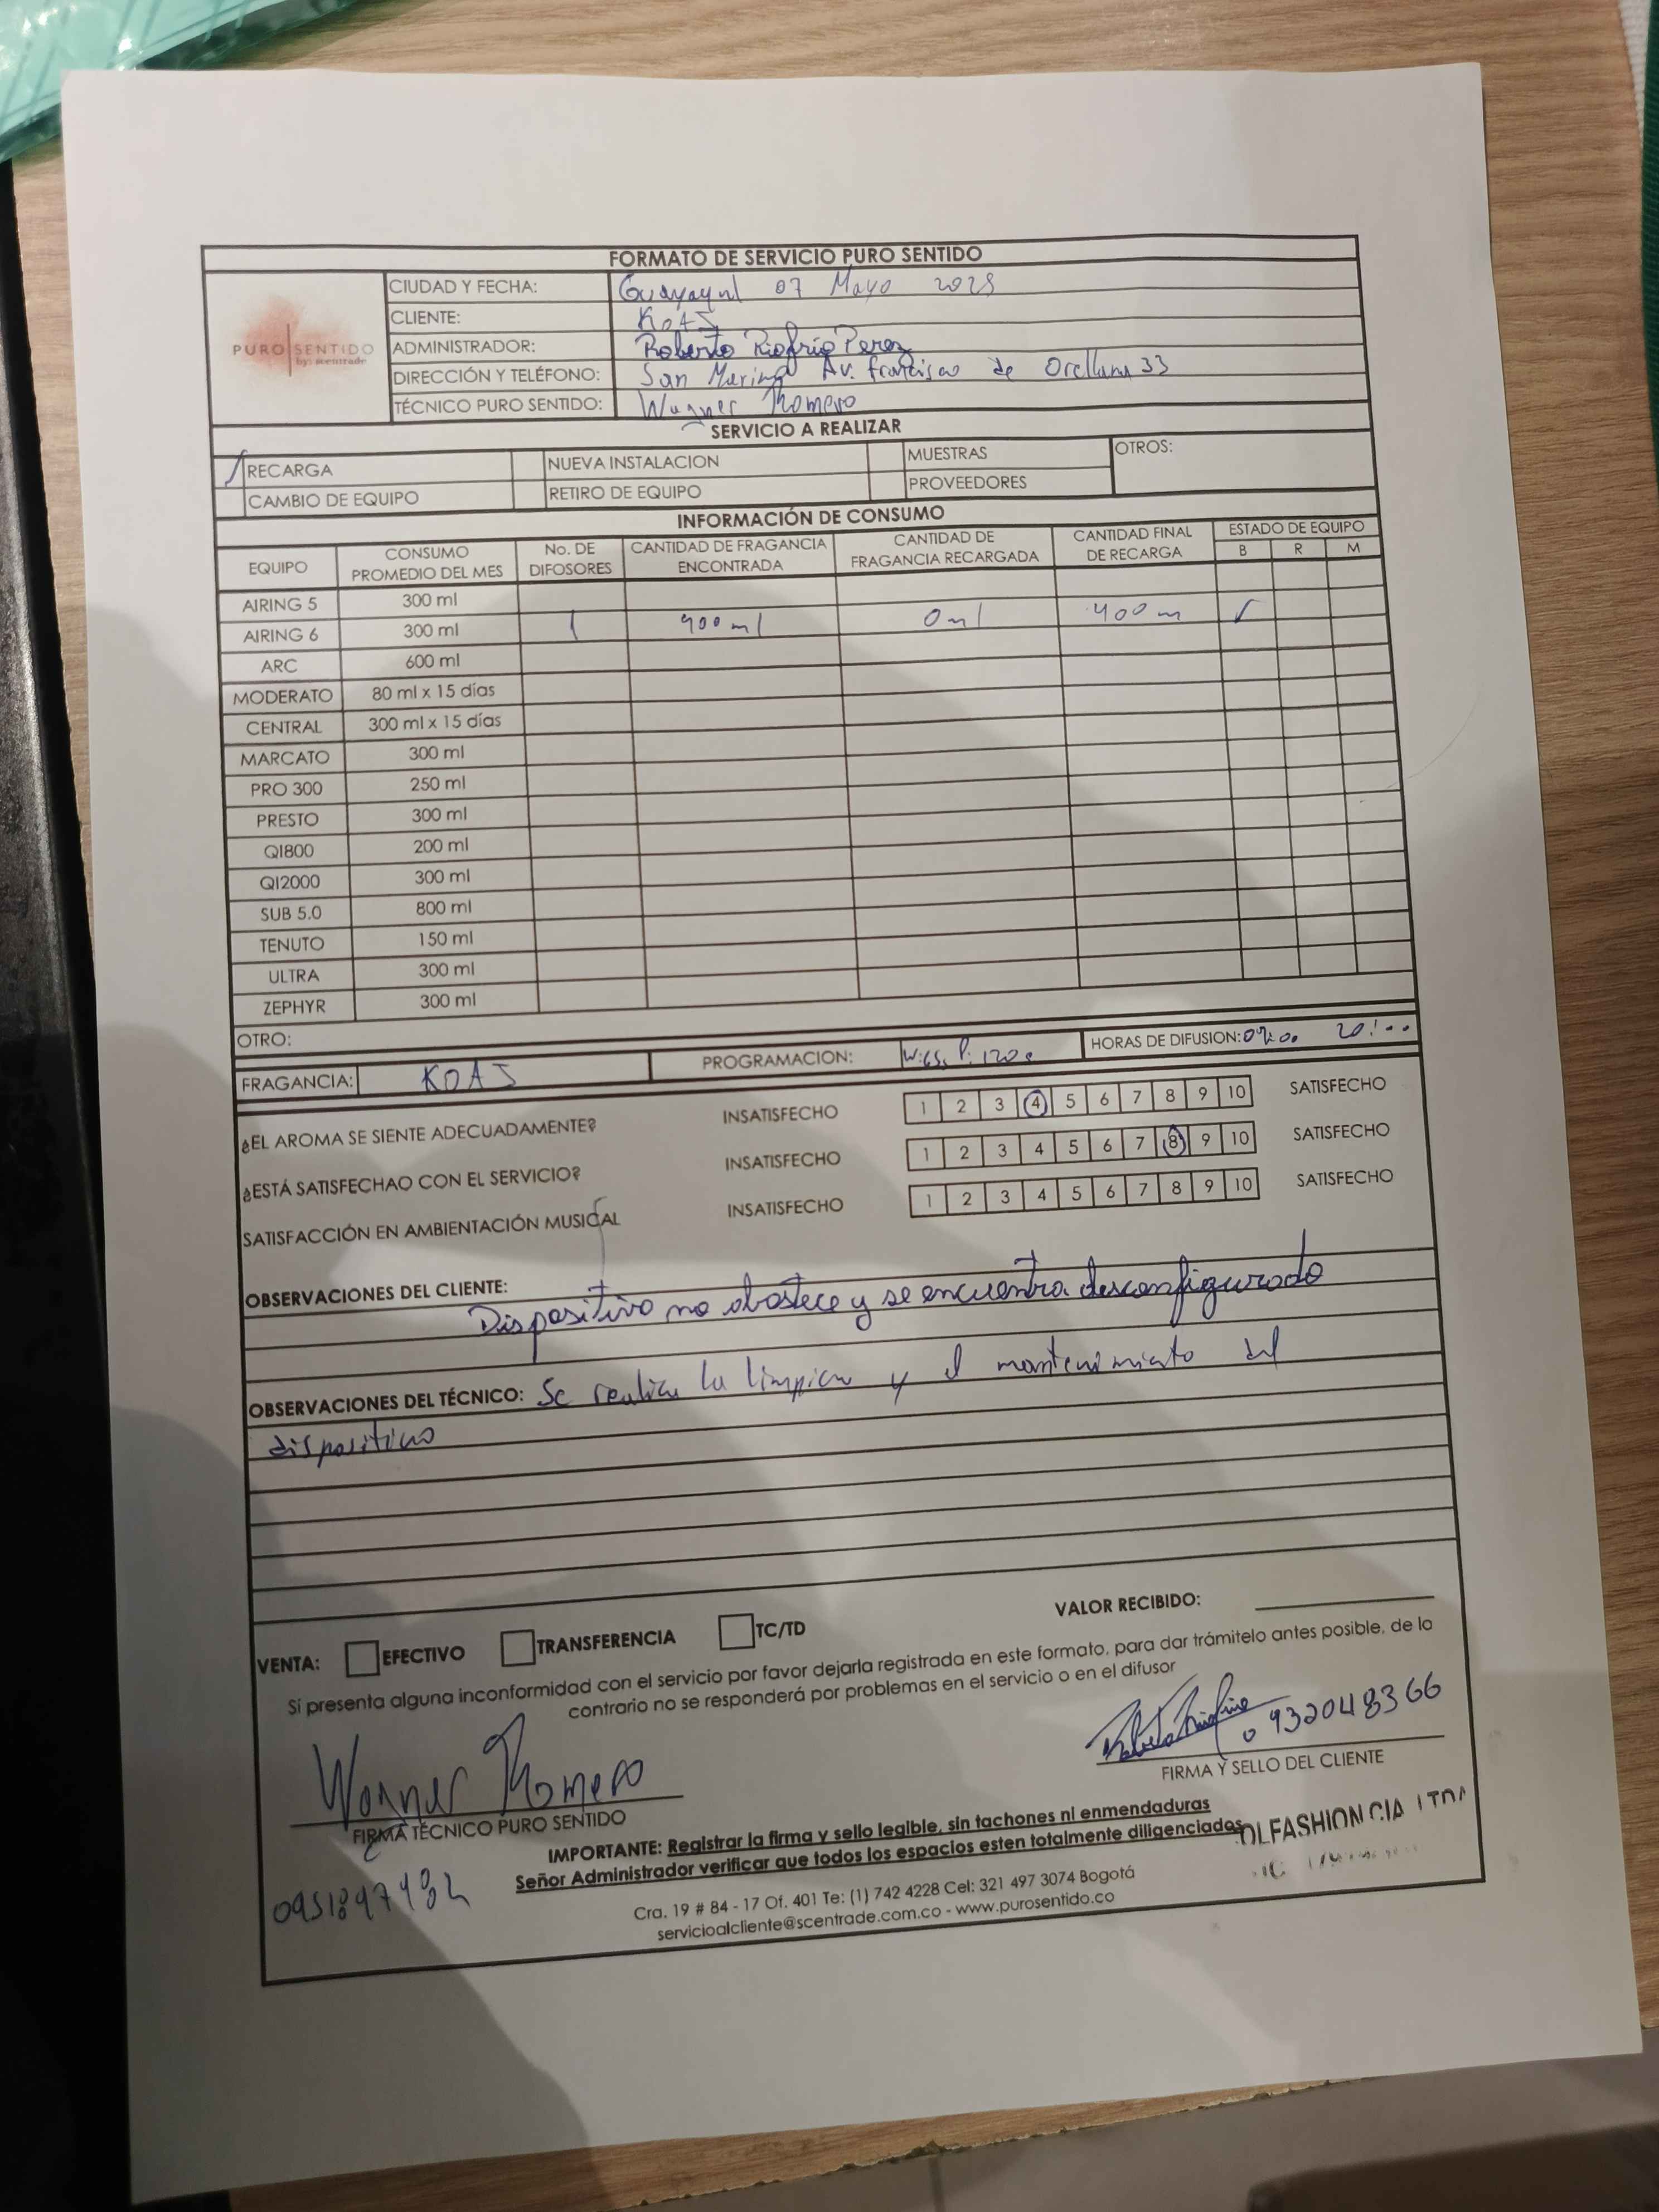 FORMATO DE SERVICIO PURO SENTIDO
PURO SENTIDO
by: scentrade
CIUDAD Y FECHA: Guayaquil 07 Mayo 2025
CLIENTE: KOAJ
ADMINISTRADOR: Roberto Riofrio Perez
DIRECCIÓN Y TELÉFONO: San Marino Av. francisco de Orellana 33
TÉCNICO PURO SENTIDO: Wagner Romero
SERVICIO A REALIZAR
RECARGA NUEVA INSTALACION MUESTRAS OTROS:
CAMBIO DE EQUIPO RETIRO DE EQUIPO PROVEEDORES
INFORMACIÓN DE CONSUMO
EQUIPO CONSUMO PROMEDIO DEL MES No. DE DIFOSORES CANTIDAD DE FRAGANCIA ENCONTRADA CANTIDAD DE FRAGANCIA RECARGADA CANTIDAD FINAL DE RECARGA ESTADO DE EQUIPO
B R M
AIRING 5 300 ml
AIRING 6 300 ml 1 400 ml 0 ml 400 m ✓
ARC 600 ml
MODERATO 80 ml x 15 días
CENTRAL 300 ml x 15 días
MARCATO 300 ml
PRO 300 250 ml
PRESTO 300 ml
QI800 200 ml
QI2000 300 ml
SUB 5.0 800 ml
TENUTO 150 ml
ULTRA 300 ml
ZEPHYR 300 ml
OTRO:
FRAGANCIA: KOAJ PROGRAMACION: P: 120s HORAS DE DIFUSION: 20:00
¿EL AROMA SE SIENTE ADECUADAMENTE? INSATISFECHO 1 2 3 4 5 6 7 8 9 10 SATISFECHO
¿ESTÁ SATISFECHAO CON EL SERVICIO? INSATISFECHO 1 2 3 4 5 6 7 8 9 10 SATISFECHO
SATISFACCIÓN EN AMBIENTACIÓN MUSICAL INSATISFECHO 1 2 3 4 5 6 7 8 9 10 SATISFECHO
OBSERVACIONES DEL CLIENTE:
Dispositivo no abastece y se encuentra desconfigurado
OBSERVACIONES DEL TÉCNICO: Se realiza la limpieza y el mantenimiento del
dispositivo
VENTA: EFECTIVO TRANSFERENCIA TC/TD VALOR RECIBIDO:
Sí presenta alguna inconformidad con el servicio por favor dejarla registrada en este formato, para dar trámitelo antes posible, de lo
contrario no se responderá por problemas en el servicio o en el difusor
Wagner Romero
0932048366
FIRMA TÉCNICO PURO SENTIDO
FIRMA Y SELLO DEL CLIENTE
IMPORTANTE: Registrar la firma y sello legible, sin tachones ni enmendaduras
Señor Administrador verificar que todos los espacios esten totalmente diligenciados
OLFASHION CIA LTDA
Cra. 19 # 84 - 17 Of. 401 Te: (1) 742 4228 Cel: 321 497 3074 Bogotá
servicioalcliente@scentrade.com.co - www.purosentido.co